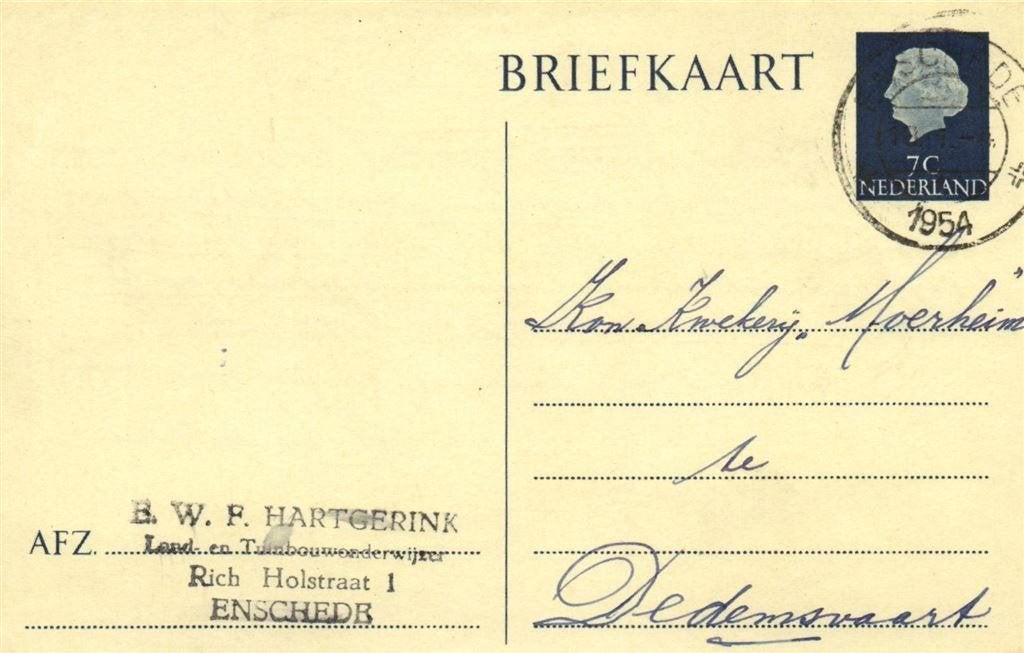 BRIEFKAART
7 C
NEDERLAND
1954
Kon. Kwekerij „Moerheim”
te
Dedemsvaart
AFZ.
E. W. F. HARTGERINK
Land- en Tuinbouwonderwijzer
Rich Holstraat 1
ENSCHEDE